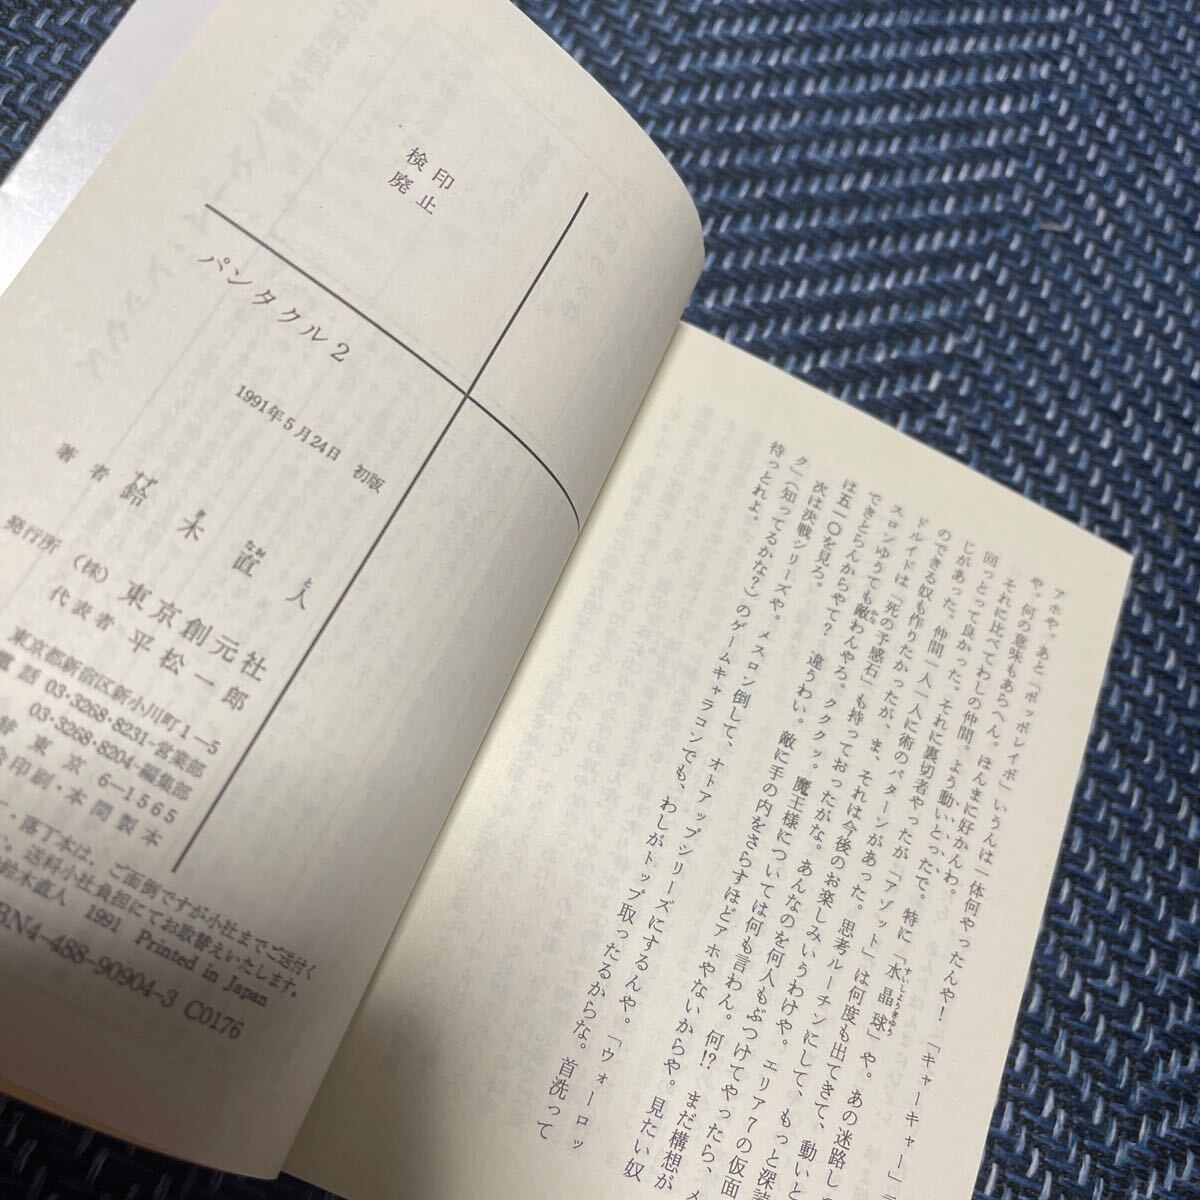 検印
廃止
パンタクル2
1991年5月24日 初版
著者 鈴木直人
すず き なお と
発行所 (株) 東京創元社
代表者 平松一郎
東京都新宿区新小川町1-5
電話 03・3268・8231-営業部
03・3268・8204-編集部
替 東京 6-1565
印刷・本間製本
・落丁本は、ご面倒ですが小社までご送付く
い。送料小社負担にてお取替えいたします。
鈴木直人 1991 Printed in Japan
BN4-488-90904-3 C0176
アホや。あと「ポッポレイポ」いうんは一体何やったんや!「キャーキャー」
や。何の意味もあらへん。ほんまに好かんわ。
それに比べてわしの仲間。よう動いとった
回っとって良かった。それに裏切者やったで。特に「水晶球」や。あの迷路し
すいしょうきゅう
じがあった。仲間一人一人に術のパターンがあった。思考ルーチンにして、もっと深読
のできる奴も作りたかったが、ま、それは今後のお楽しみいうわけや。エリア7の仮面
ドルイドは「死の予感石」も持っておったがな。あんなのを何人もぶつけてやったら、メ
スロンゆうても敵わんやろ。ククッ。魔王様については何も言わん。何!? まだ構想が
かな
できとらんからやて? 違うわい。敵に手の内をさらすほどアホやないからや。見たい奴
は五一〇を見ろ。
次は決戦シリーズや。メスロン倒して、オトアップシリーズにするんや。「ウォーロッ
ク」(知ってるかな?)のゲームキャラコンでも、わしがトップ取ったるからな。首洗って
待っとれよ。